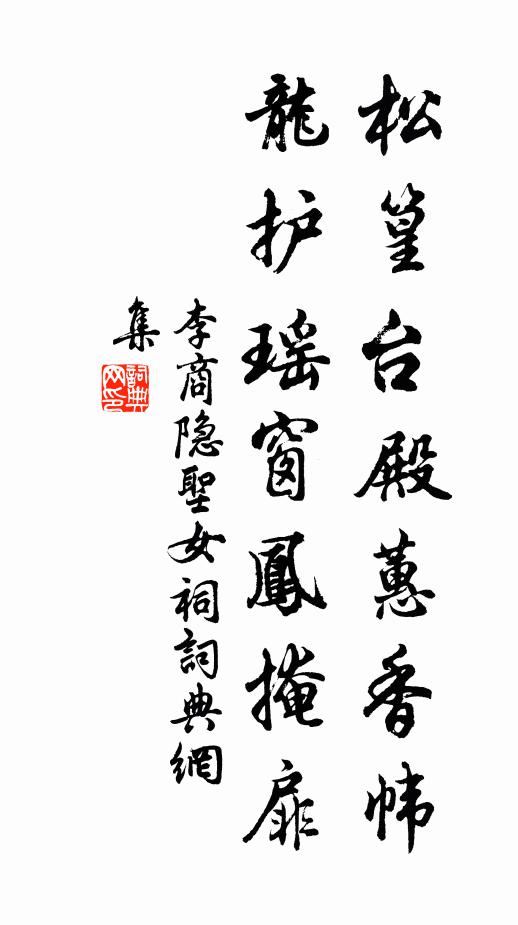 松篁台殿蕙香帏
龍护瑶窗鳳掩扉
李商隐聖女祠詞典網
集
詞典
网印